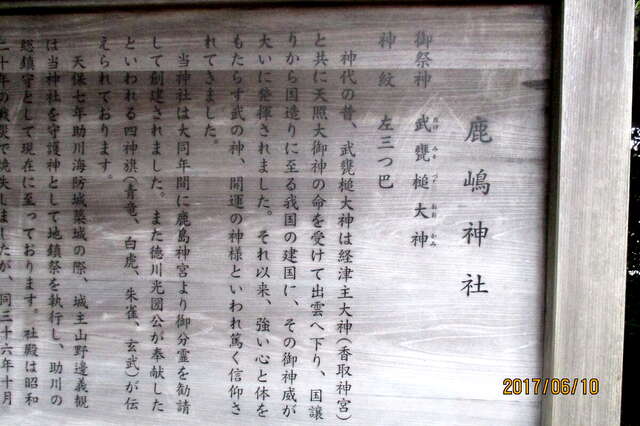 鹿嶋神社
御祭神 武甕槌大神
たけ みか づち おお かみ
神紋 左三つ巴
神代の昔、武甕槌大神は経津主大神(香取神宮)
と共に天照大御神の命を受けて出雲へ下り、国譲
りから国造りに至る我国の建国に、その御神威が
大いに発揮されました。それ以来、強い心と体を
もたらす武の神、開運の神様といわれ篤く信仰さ
れてきました。
当神社は大同年間に鹿島神宮より御分霊を勧請
して創建されました。また徳川光圀公が奉献した
といわれる四神旗(青竜、白虎、朱雀、玄武)が伝
えられております。
天保七年助川海防城築城の際、城主山野邊義観
は当神社を守護神として地鎮祭を執行し、助川の
総鎮守として現在に至っております。社殿は昭和
二十年の戦災で焼失しましたが、同三十六年十月
2017/06/10